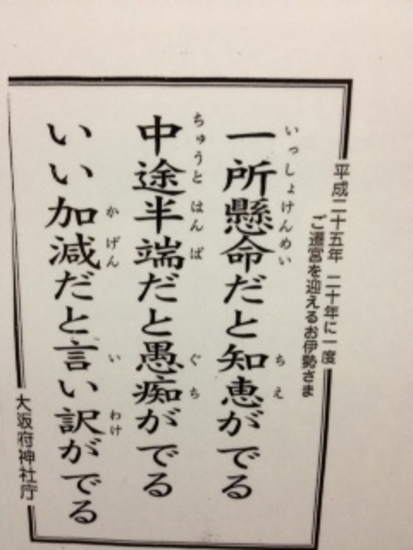 平成二十五年 二十年に一度
ご遷宮を迎えるお伊勢さま
一所懸命だと知恵がでる
いっしょけんめい ちえ
中途半端だと愚痴がでる
ちゅうと はんぱ ぐち
いい加減だと言い訳がでる
かげん い わけ
大阪府神社庁